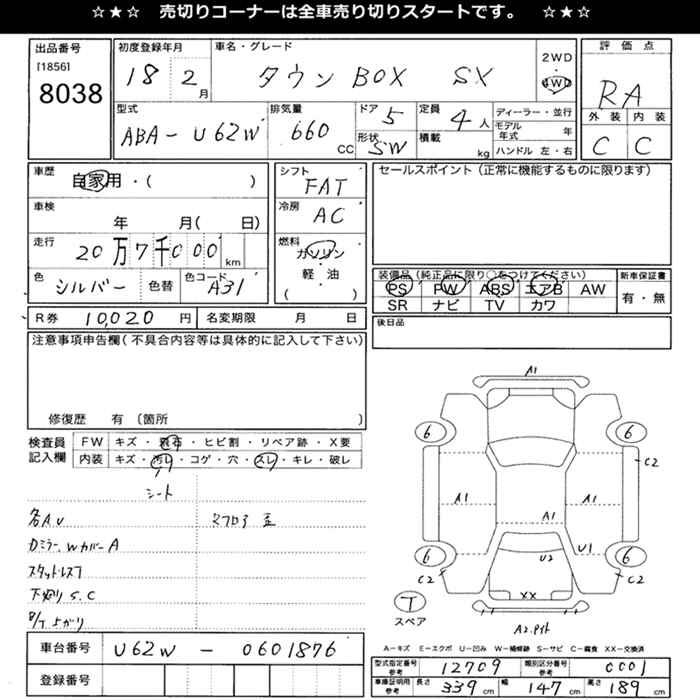 ☆★☆ 売切りコーナーは全車売り切りスタートです。 ☆★☆
出品番号 初度登録年月 車名・グレード 評価点
[1856] 8038 18 2月 タウンBOX SX 2WD 4WD RA
型式 排気量 ドア 定員 ディーラー・並行 外装 内装
ABA-U62W 660 CC 5 4人 モデル年式 年 C C
形状 SW 積載 kg ハンドル 左・右
車歴 自家用・( ) シフト FAT セールスポイント(正常に機能するものに限ります)
車検 年 月( 日) 冷房 AC
走行 20万7千000km 燃料 ガソリン・軽油 ( )
色 シルバー 色替 色コード A31
装備品(純正品に限り○をつけてください) 新車保証書
PS PW ABS エアB AW 有・無
SR ナビ TV カワ
R券 10,020円 名変期限 月 日 後日品
注意事項申告欄(不具合内容等は具体的に記入して下さい)
修復歴 有 〔箇所 〕
検査員記入欄 FW キズ・飛石・ヒビ割・リペア跡・X要
内装 キズ・汚レ・コゲ・穴・スレ・キレ・破レ
シート
各A.U
カミラー.WカバーA
スタットレス7
下廻りS.C
A1
6 6
C2
A1 A1
A1
U1
U2
6 6
C2 C2
XX
T
スペア
A2.
A-キズ E-エクボ U-凹み W-補修跡 S-サビ C-腐食 XX-交換済
車台番号 U62W-0601876
登録番号
型式指定番号 参考 12709 類別区分番号 参考 0001
車庫証明用 参考 長さ 339cm 幅 147cm 高さ 189cm